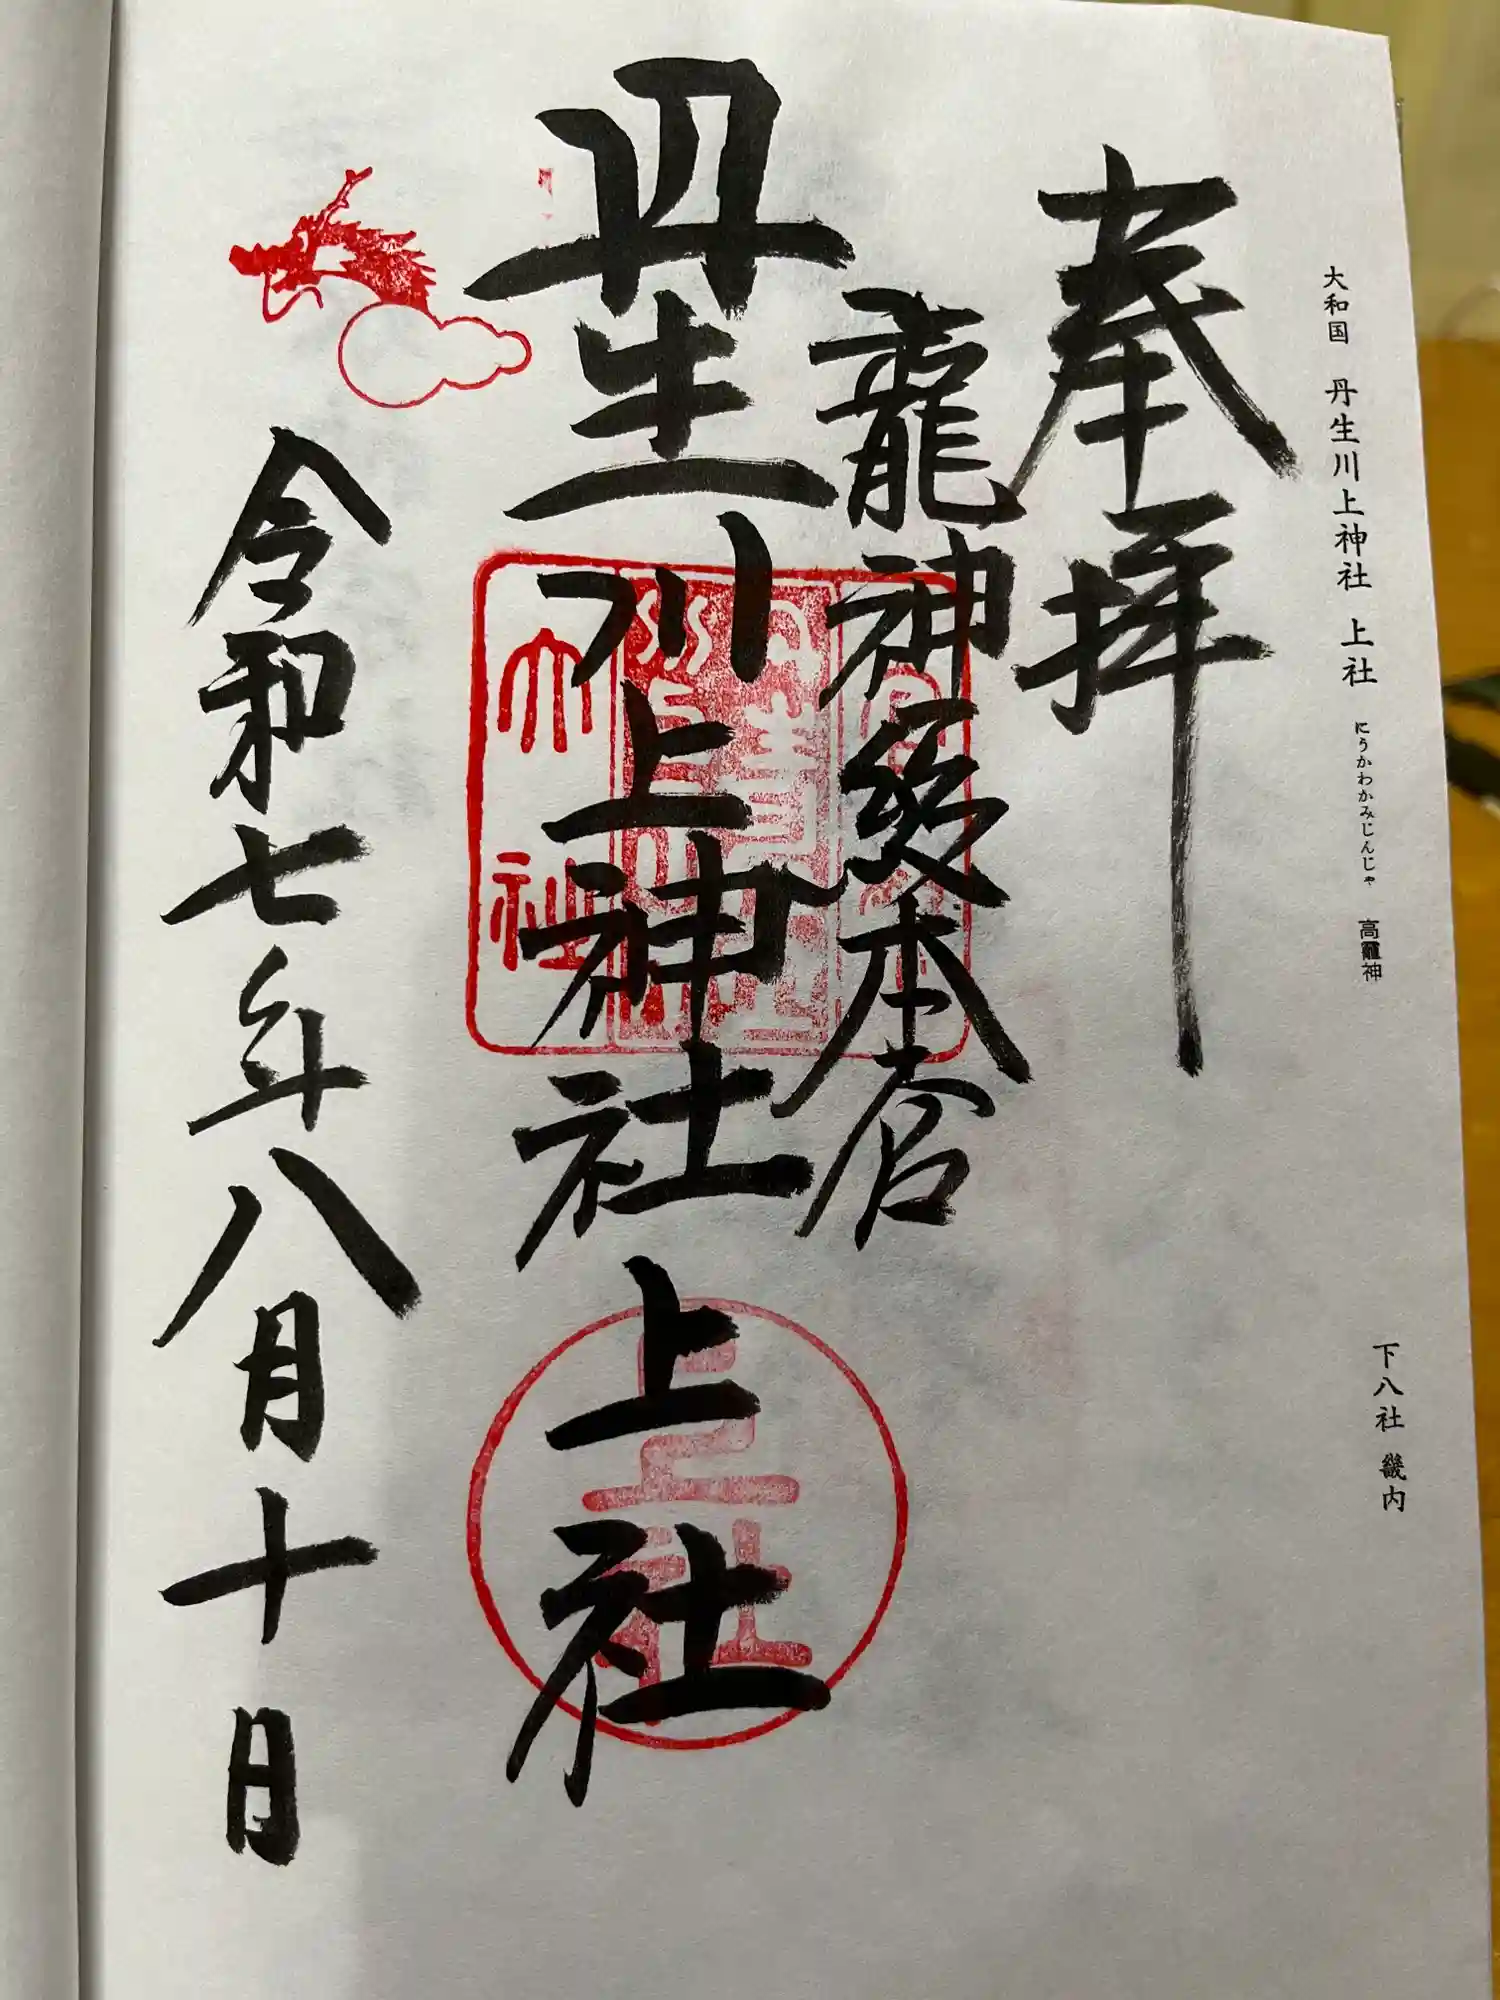 大和国 丹生川上神社 上社 にうかわかみじんじゃ 高龗神
下八社 畿内
奉拝
龍神総本宮
丹生川上神社上社
令和七年八月十日
上社